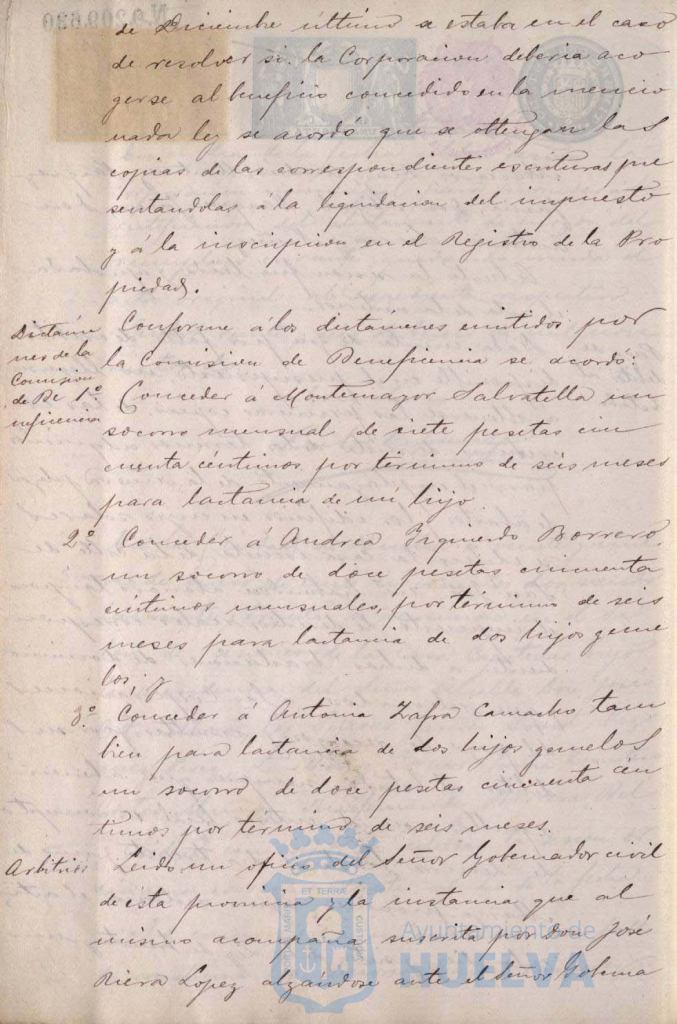 N.0.209.630
de Diciembre último se estaba en el caso
de resolver si la Corporacion deberia aco
gerse al beneficio concedido en la mencio
nada ley se acordó que se obtengan las
copias de las correspondientes escrituras pre
sentándolas á la liquidacion del impuesto
y á la inscripcion en el Registro de la Pro
piedad.
Dictáme
nes de la
Comision
de Be
neficencia
Conforme á los dictámenes emitidos por
la Comision de Beneficencia se acordó:
1º Conceder á Montemayor Salvatella un
socorro mensual de siete pesetas cin
cuenta céntimos por términos de seis meses
para lactancia de un hijo.
2º Conceder á Andrea Izquierdo Borrero,
un socorro de doce pesetas cincuenta
céntimos mensuales, por término de seis
meses para lactancia de dos hijos geme
los; y
3º Conceder á Antonia Zafra Camacho tam
bien para lactancia de dos hijos gemelos
un socorro de doce pesetas cincuenta cén
timos por termino de seis meses.
Arbitrios
Leido un oficio del Señor Gobernador civil
de esta provincia y la instancia que al
mismo acompaña suscrita por Don José
Riera Lopez alzándose ante el Señor Goberna
Ayuntamiento de
HUELVA